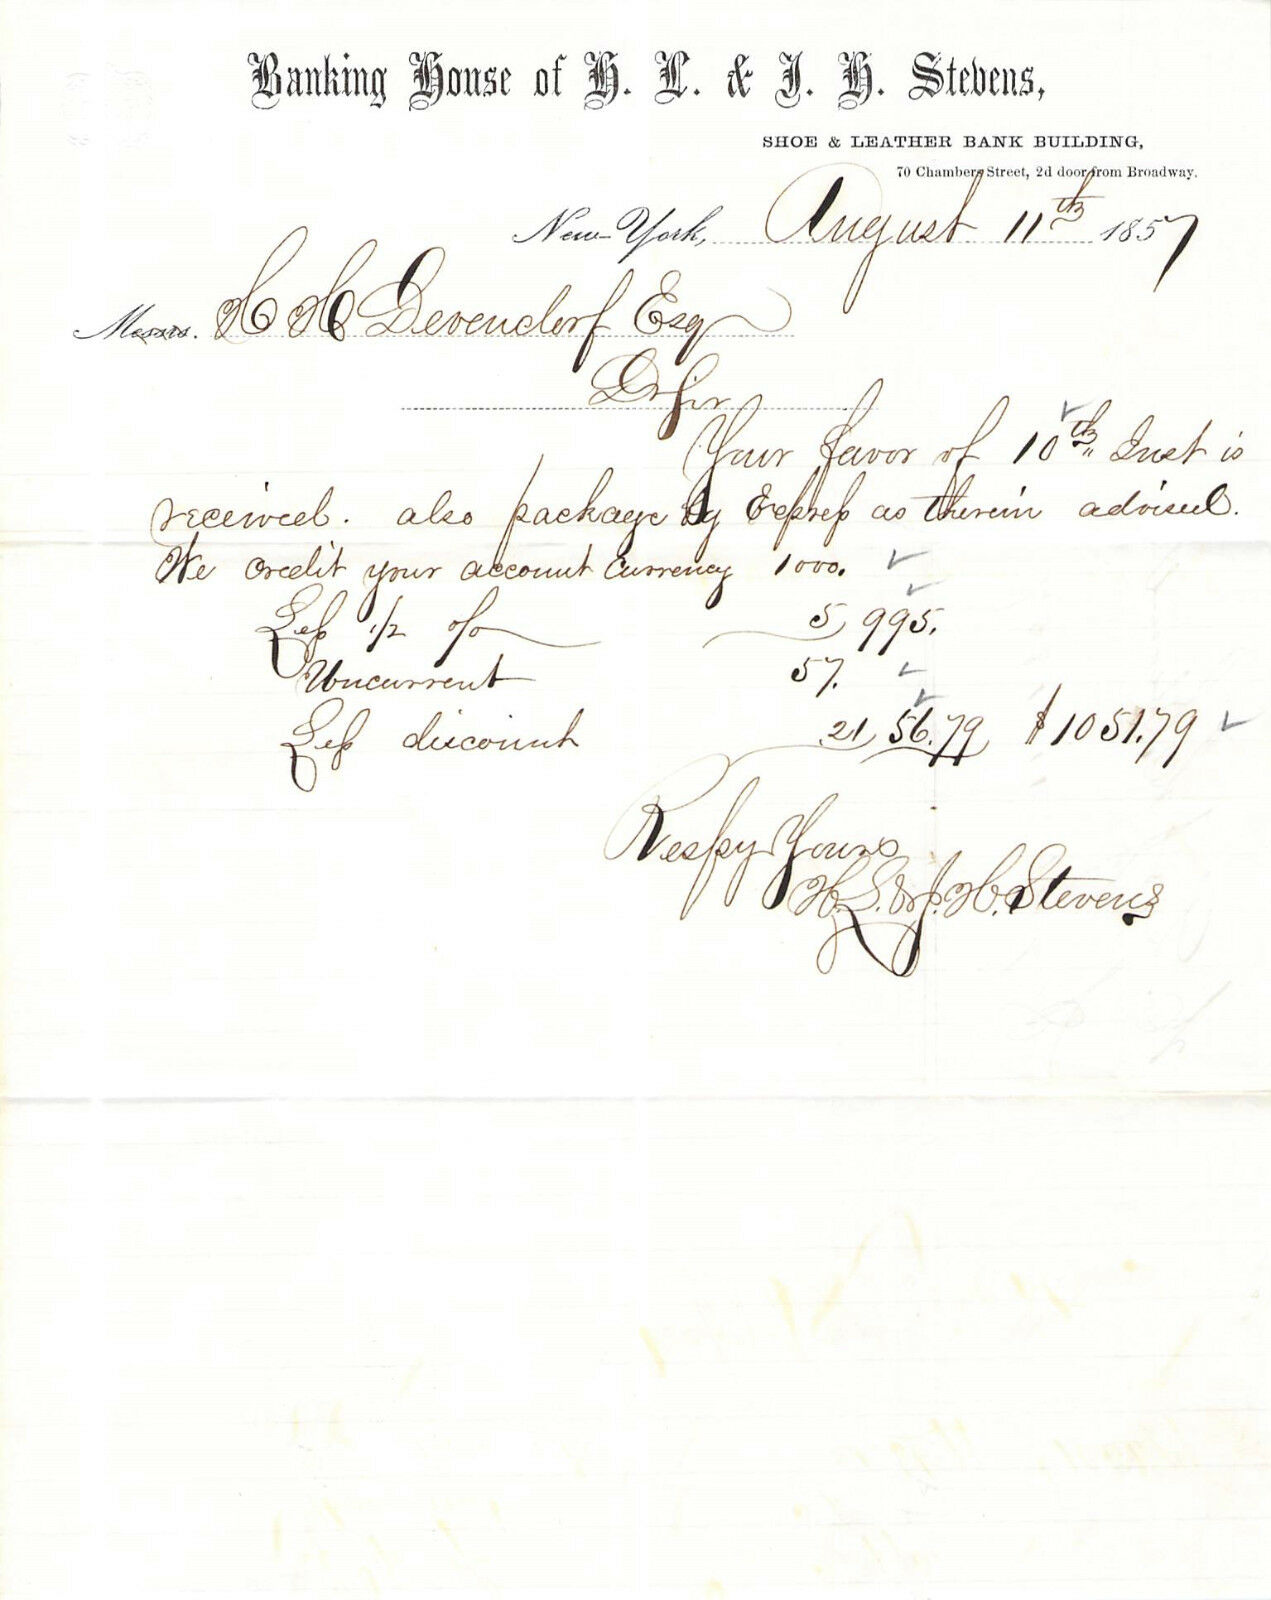 Banking House of H. L. & J. H. Stevens,
SHOE & LEATHER BANK BUILDING,
70 Chambers Street, 2d door from Broadway.
New-York, August 11th 1857
Messrs. H H Devendorf Esq
Dr Sir
Your favor of 10th Inst is
received. also package by Express as therein advised.
We credit your account currency 1000.
Less 1/2 o/o 5 995.
Uncurrent 57.
Less discount .21 56.79 $1051.79
Respy Yours
H. L. & J. H. Stevens